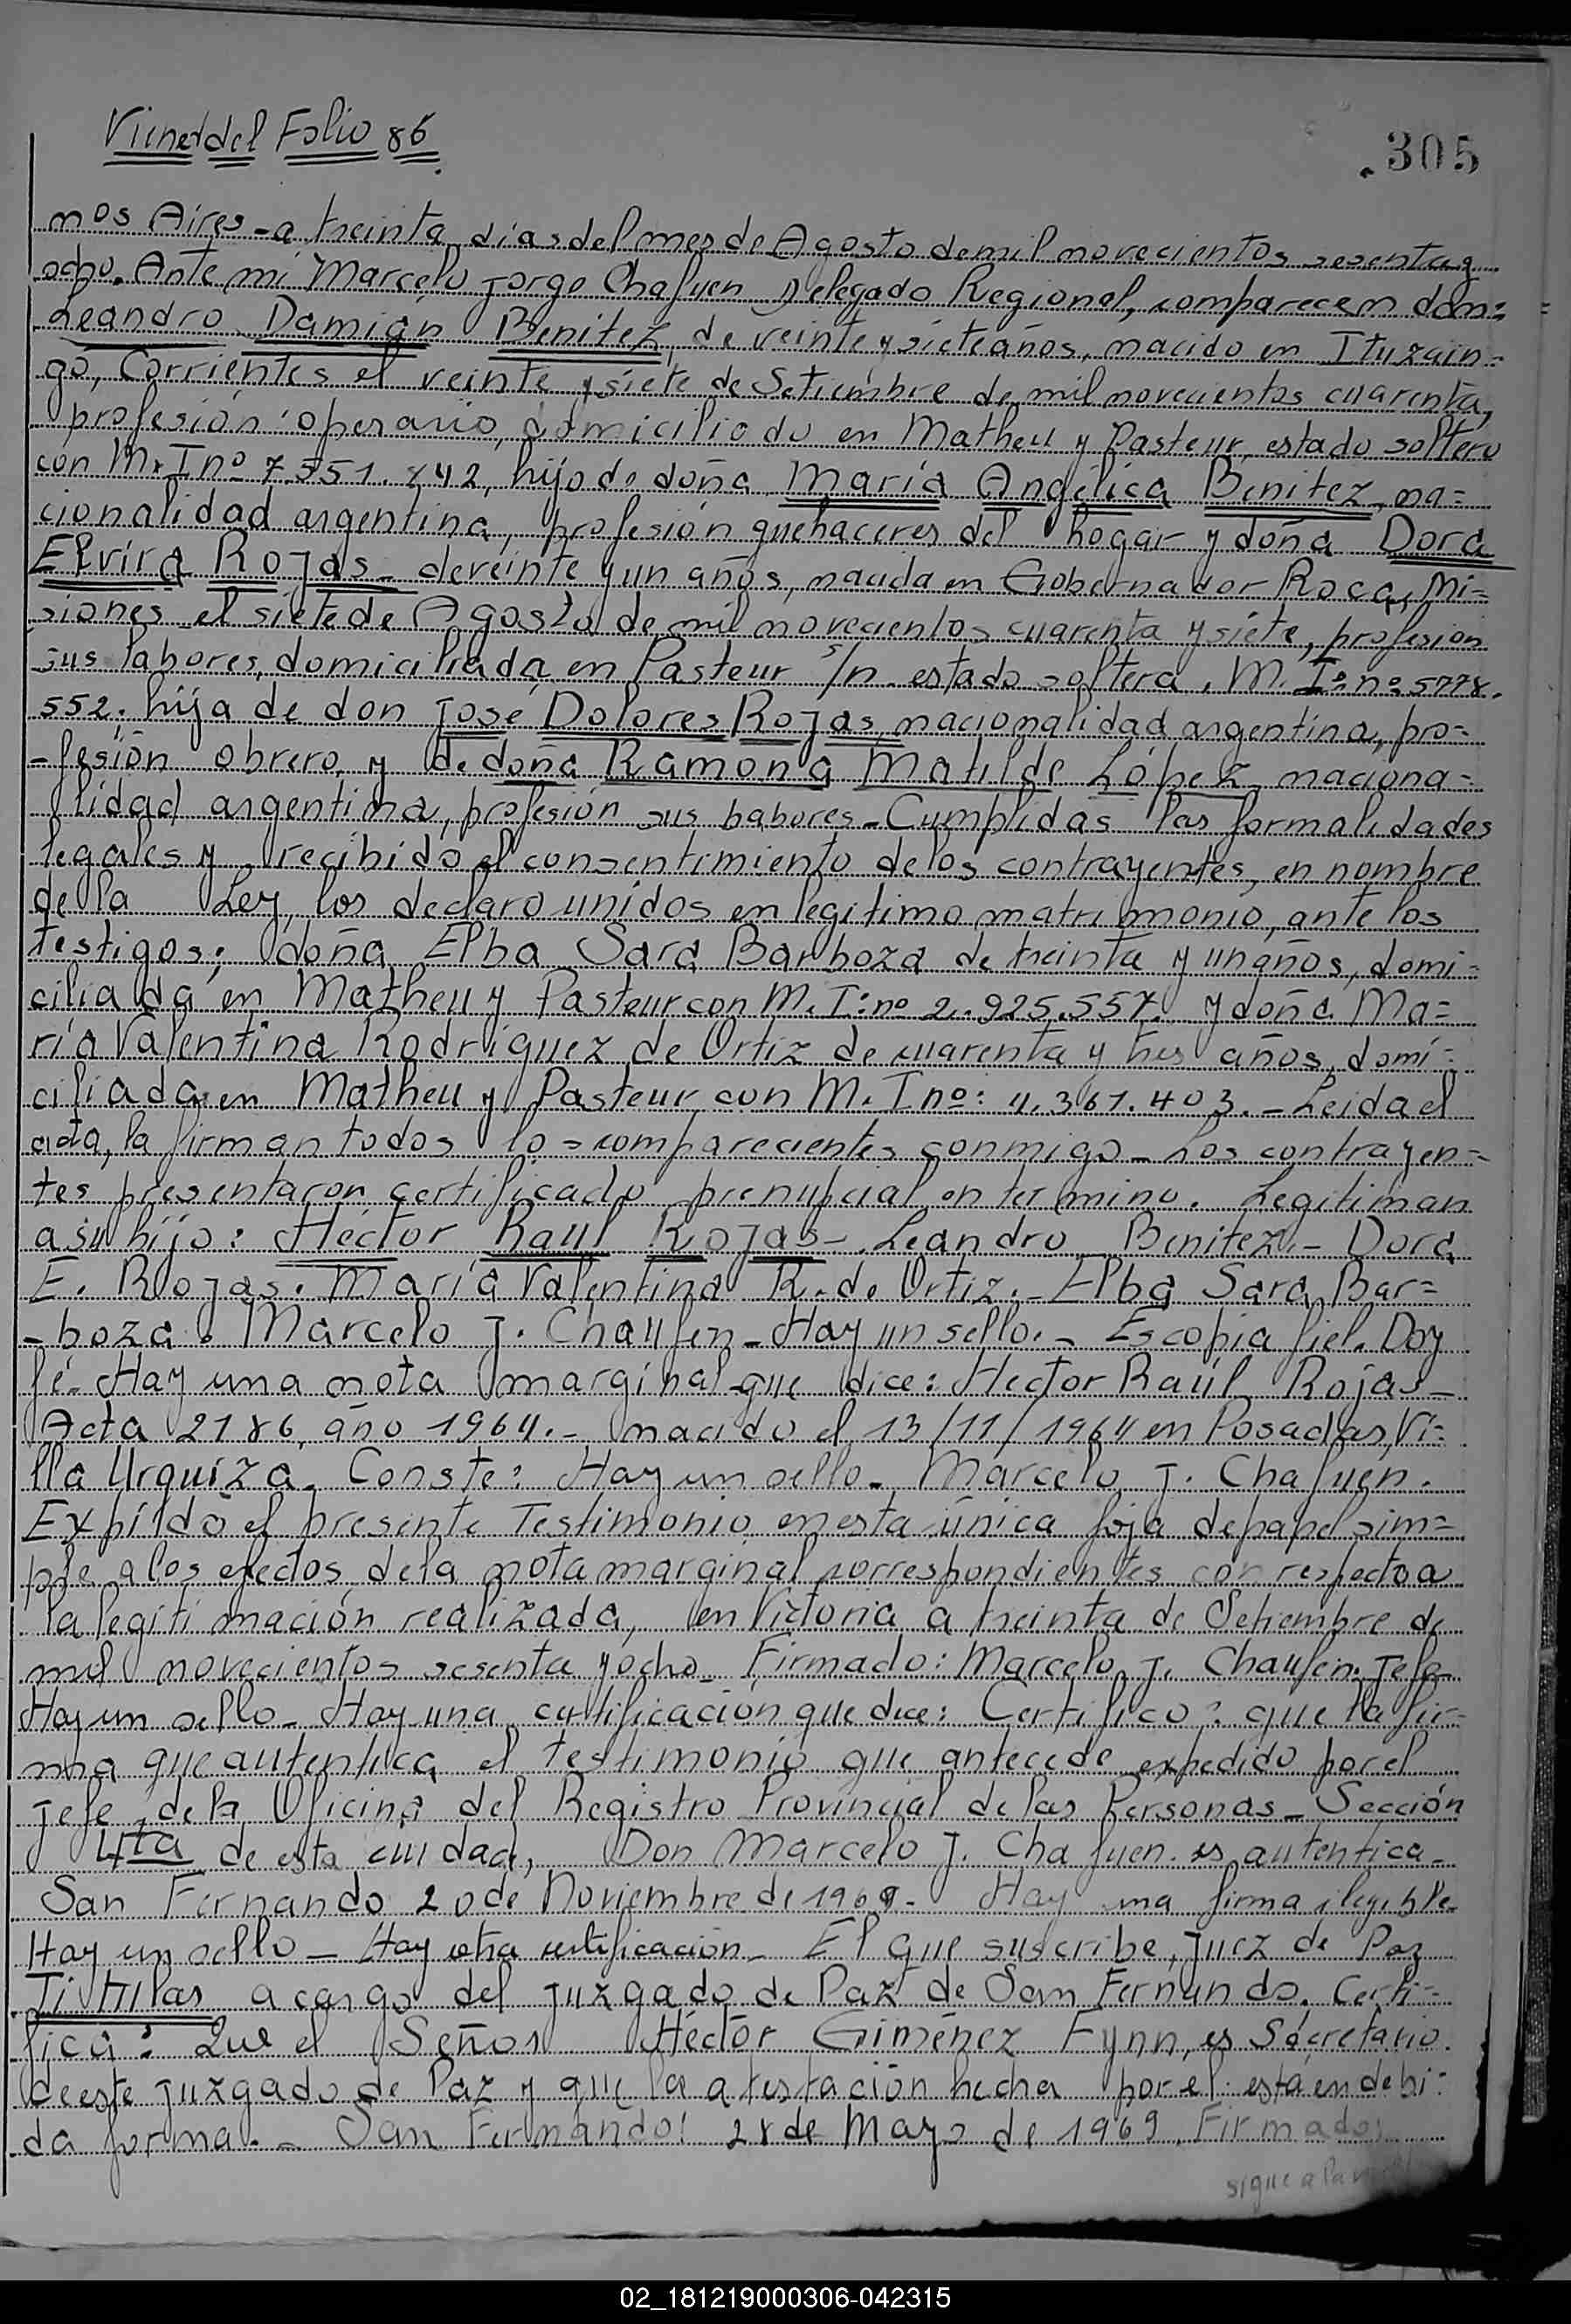 Viene del Folio 86
305
nos Aires-a treinta dias del mes de Agosto de mil novecientos sesenta y
ocho. Ante mi Marcelo Jorge Chafuen Delegado Regional, comparecen don:
Leandro Damián Benitez, de veinte y siete años, nacido en Ituzain=
gó, Corrientes el veinte y siete de Setiembre de mil novecientos cuarenta,
profesión: operario, domiciliado en Matheu y Pasteur, estado soltero
con M. I nº 7.551.842, hijo de doña María Angélica Benitez, na=
cionalidad argentina, profesión quehaceres del hogar y doña Dora
Elvira Rojas- de veinte y un años, nacida en Gobernador Roca, Mi=
siones el siete de Agosto de mil novecientos cuarenta y siete, profesion
sus labores, domiciliada en Pasteur s/n. estado soltera. M. I: nº 5778.
552. hija de don José Dolores Rojas, nacionalidad argentina, pro=
-fesión obrero, y de doña Ramona Matilde López, naciona=
lidad argentina, profesión sus babores-Cumplidas las formalidades
legales y recibido el consentimiento de los contrayentes, en nombre
de la Ley, los declaro unidos en legitimo matrimonio, ante los
testigos; doña Elba Sara Barboza de treinta y un años, domi=
ciliada en Matheu y Pasteur con M. I: nº 2.925.557. y doña Ma=
ría Valentina Rodríguez de Ortiz de cuarenta y tres años, domi=
ciliada en Matheu y Pasteur con M. I nº: 4.361.403.-Leida el
acta, la firman todos los comparecientes conmigo-Los contrayen=
tes presentaron certificado prenupcial en termino. Legitiman
a su hijo: Héctor Raul Rojas-Leandro Benitez.-Dora
E. Rojas. María Valentina R. de Ortiz.-Elba Sara Bar=
-boza. Marcelo J. Chaufen-Hay un sello.-Es copia fiel. Doy
fé-Hay una nota marginal que dice: Hector Raúl Rojas-
Acta 2186, año 1964.-nacido el 13/11/1964 en Posadas, Vi=
lla Urquiza. Conste: Hay un sello-Marcelo J. Chafuén.
Expido el presente Testimonio en esta única foja de papel sim=
ple a los efectos de la nota marginal correspondientes con respecto a
la legitimación realizada, en Victoria a treinta de Setiembre de
mil novecientos sesenta y ocho-Firmado: Marcelo J. Chaufen. Jefe-
Hay un sello-Hay una certificacion que dice: Certifico: que la fir=
ma que autentica el testimonio que antecede expedido por el
Jefe de la Oficina del Registro Provincial de las Personas-Sección
4ta de esta ciudad, Don Marcelo J. Chafuen. es autentica-
San Fernando 20 de Noviembre de 1968-Hay una firma ilegible-
Hay un sello-Hay otra certificación-El que suscribe, Juez de Paz
Titular a cargo del Juzgado de Paz de San Fernando. Certi=
fica: Que el Señor Héctor Giménez Fynn, es Sécretario.
de este Juzgado de Paz y que la atestación hecha por el está en debi=
da forma.-San Fernando: 28 de Mayo de 1969. Firmado:
sigue a la
02_181219000306-042315